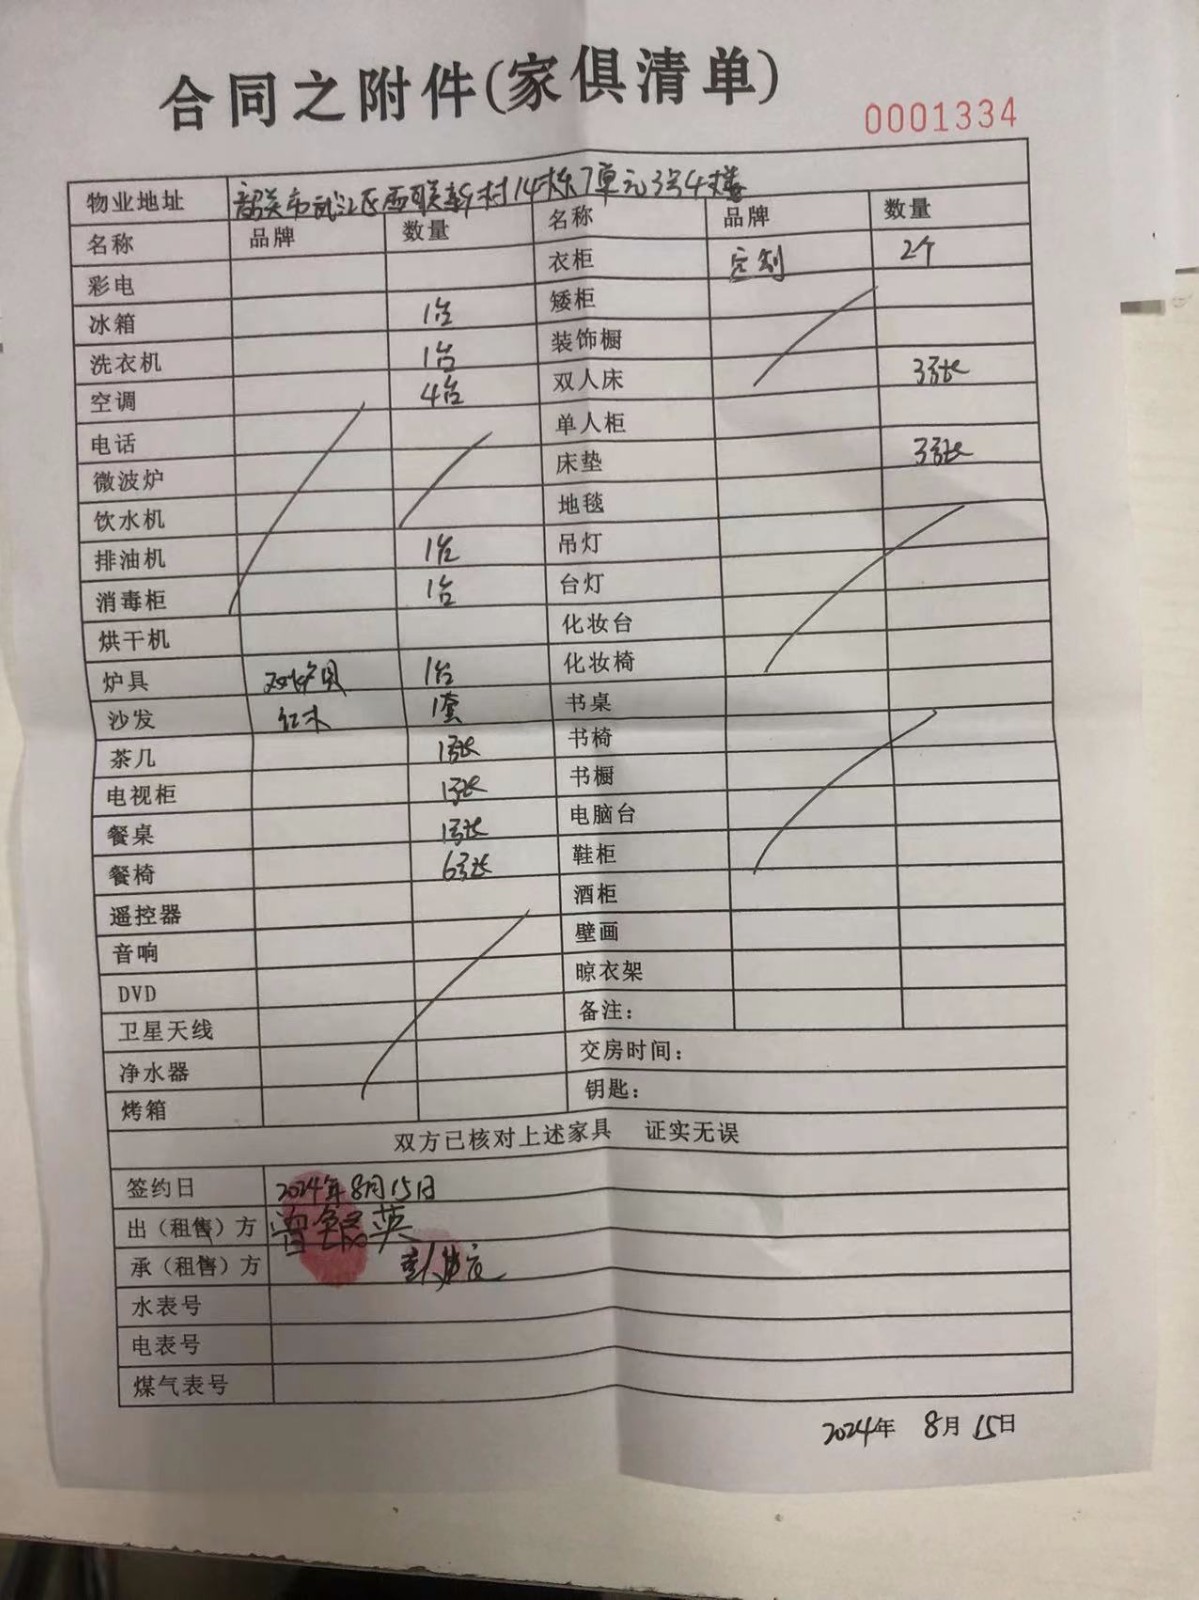 合同之附件(家俱清单)
0001334
物业地址 韶关市武江区西联新村14栋7单元3号4楼
名称 品牌 数量 名称 品牌 数量
彩电 衣柜 定制 2个
冰箱 1台 矮柜
洗衣机 1台 装饰橱
空调 4台 双人床 3张
电话 单人柜
微波炉 床垫 3张
饮水机 地毯
排油机 1台 吊灯
消毒柜 1台 台灯
烘干机 化妆台
炉具 1台 化妆椅
沙发 红木 1套 书桌
茶几 1张 书椅
电视柜 1张 书橱
餐桌 1张 电脑台
餐椅 6张 鞋柜
遥控器 酒柜
音响 壁画
DVD 晾衣架
卫星天线 备注：
净水器 交房时间：
烤箱 钥匙：
双方已核对上述家具 证实无误
签约日 2024年8月15日
出（租售）方
承（租售）方
水表号
电表号
煤气表号
2024年 8月 15日